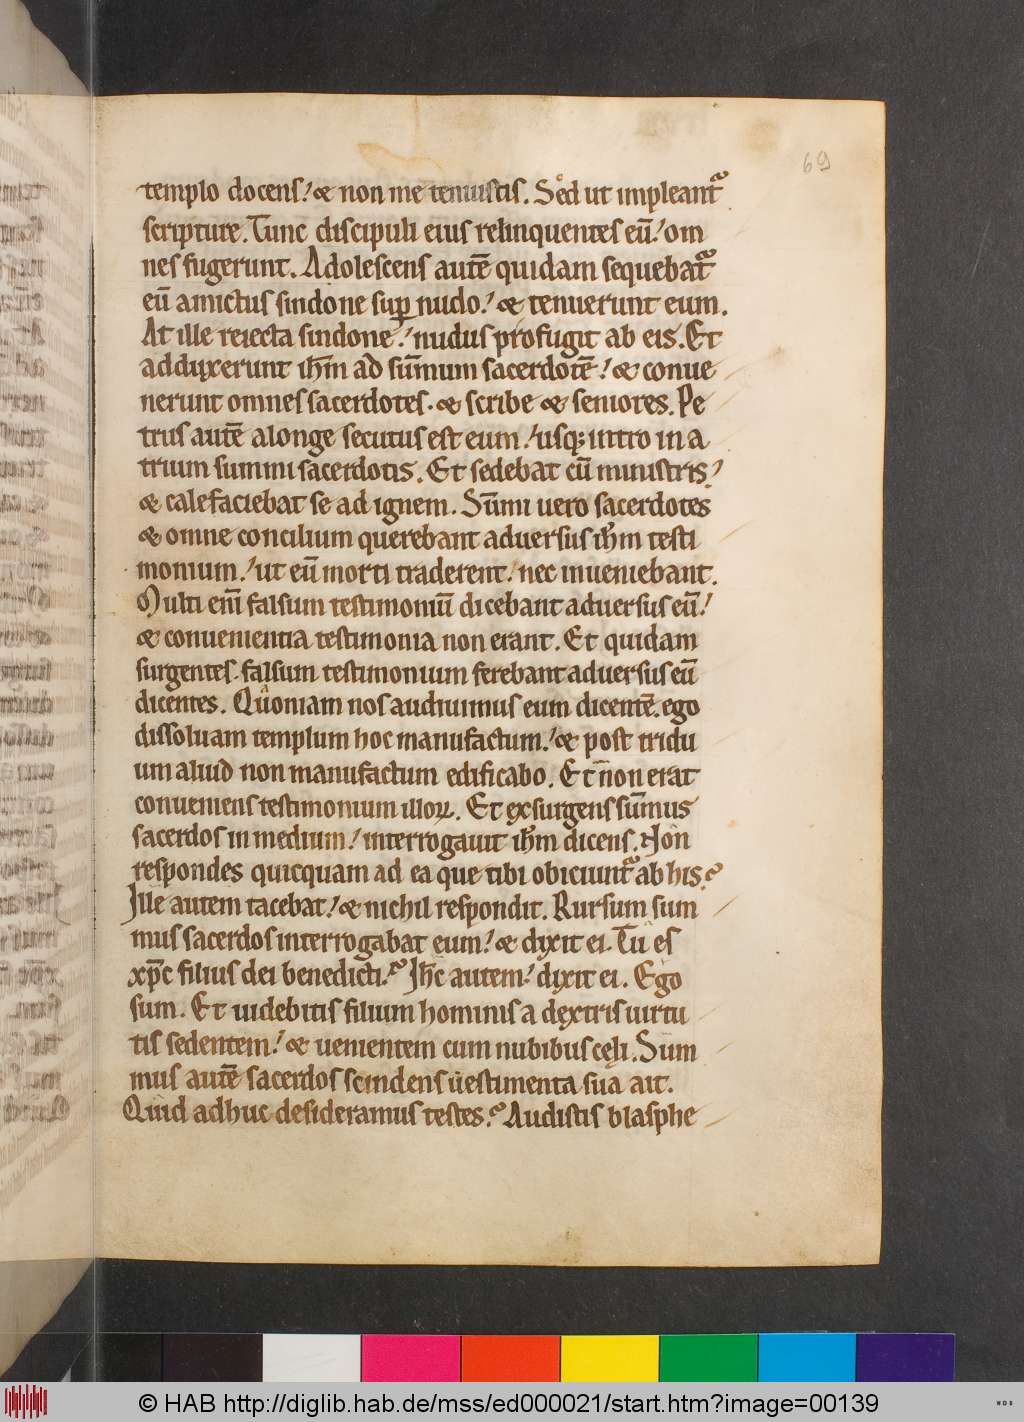 69
templo docens! & non me tenuistis. Sed ut impleantᷣ
scripture. Tunc discipuli eius relinquentes eū! om
nes fugerunt. Adolescens autē quidam sequebatᷣ
eū amictus sindone suꝑ nudo! & tenuerunt eum.
At ille reiecta sindone! nudus profugit ab eis. Et
adduxerunt ihm̄ ad sūmum sacerdotē! & conue
nerunt omnes sacerdotes. & scribe & seniores. Pe
trus autē alonge secutus est eum! usq; intro in a
trium summi sacerdotis. Et sedebat cū ministris!
& calefaciebat se ad ignem. Sūmi uero sacerdotes
& omne concilium querebant aduersus ihm̄ testi
monium! ut eū morti traderent! nec inueniebant.
Multi eni̅ falsum testimoniū dicebant aduersus eū!
& conuenientia testimonia non erant. Et quidam
surgentes. falsum testimonium ferebant aduersus eū
dicentes. Quoniam nos audiuimus eum dicentē. ego
dissoluam templum hoc manufactum! & post tridu
um aliud non manufactum edificabo. Et non erat
conueniens testimonium illoꝝ. Et exsurgens sūmus
sacerdos in medium! interrogauit ihm̄ dicens. Non
respondes quicquam ad ea que tibi obiciuntᷣ ab his?
Ille autem tacebat! & nichil respondit. Rursum sum
mus sacerdos interrogabat eum! & dixit ei. Tu es
xp̄c filius dei benedicti? Ih̄c autem! dixit ei. Ego
sum. Et uidebitis filium hominis a dextris uirtu
tis sedentem! & uenientem cum nubibus cęli. Sum
mus autē sacerdos scindens uestimenta sua ait.
Quid adhuc desideramus testes? Audistis blasphe
© HAB http://diglib.hab.de/mss/ed000021/start.htm?image=00139